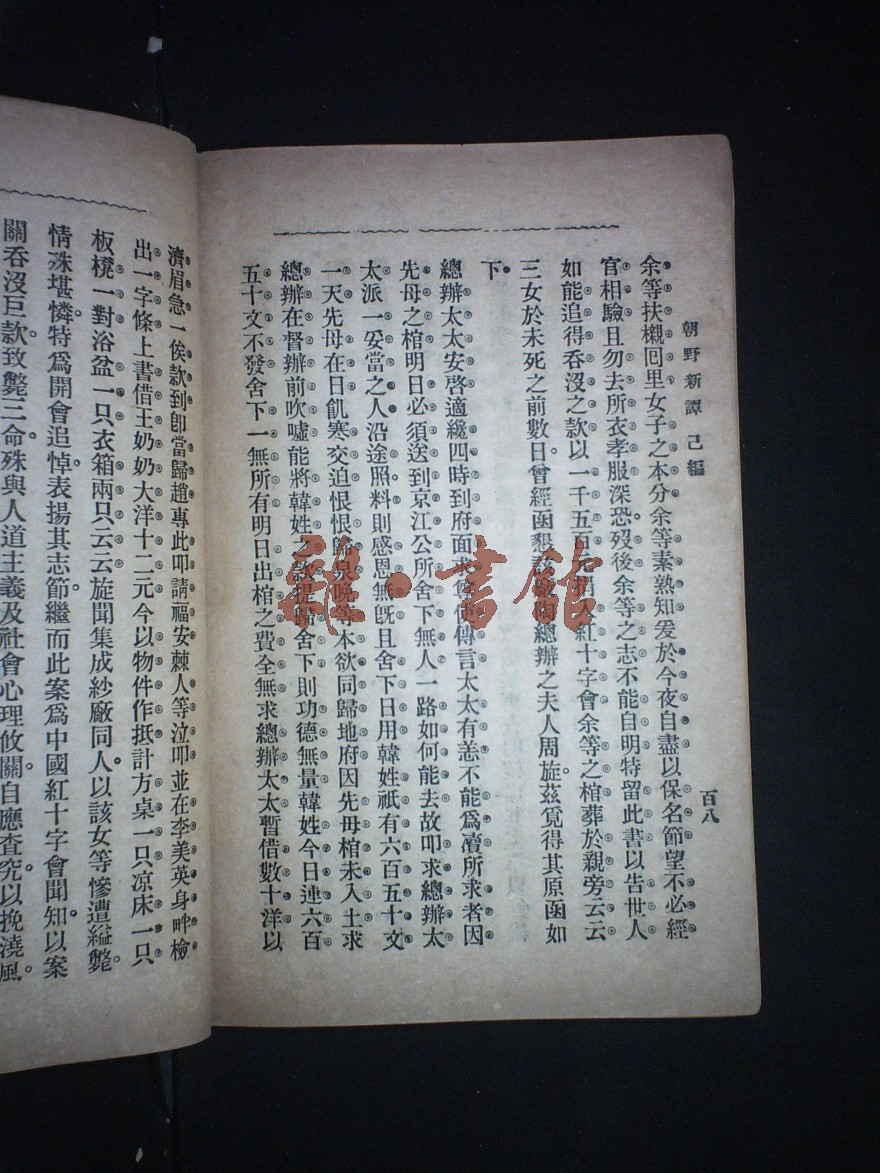 朝野新譚 己編
百八
余等扶櫬囘里女子之本分余等素熟知爰於今夜自盡以保名節望不必經
官相驗且勿去所衣孝服深恐歿後余等之志不能自明特留此書以告世人
如能追得吞沒之款以一千五百元捐入紅十字會余等之棺葬於親旁云云
三女於未死之前數日曾經函懇該廠陶總辦之夫人周旋茲覓得其原函如
下
總辦太太安啓適纔四時到府面求尊使傳言太太有恙不能爲瀆所求者因
先母之棺明日必須送到京江公所舍下無人一路如何能去故叩求總辦太
太派一妥當之人沿途照料則感恩無旣且舍下日用韓姓祇有六百五十文
一天先母在日飢寒交迫恨恨歸泉晩等本欲同歸地府因先母棺未入土求
總辦在督辦前吹噓能將韓姓之款提歸舍下則功德無量韓姓今日連六百
五十文不發舍下一無所有明日出棺之費全無求總辦太太暫借數十洋以
濟眉急一俟款到卽當歸趙專此叩請福安棘人等泣叩並在李美英身畔檢
出一字條上書借王奶奶大洋十二元今以物件作抵計方桌一只凉床一只
板櫈一對浴盆一只衣箱兩只云云旋聞集成紗廠同人以該女等慘遭縊斃。
情殊堪憐特爲開會追悼表揚其志節繼而此案爲中國紅十字會聞知以案
關吞沒巨款致斃三命殊與人道主義及社會心理攸關自應查究以挽澆風。
雜·書館